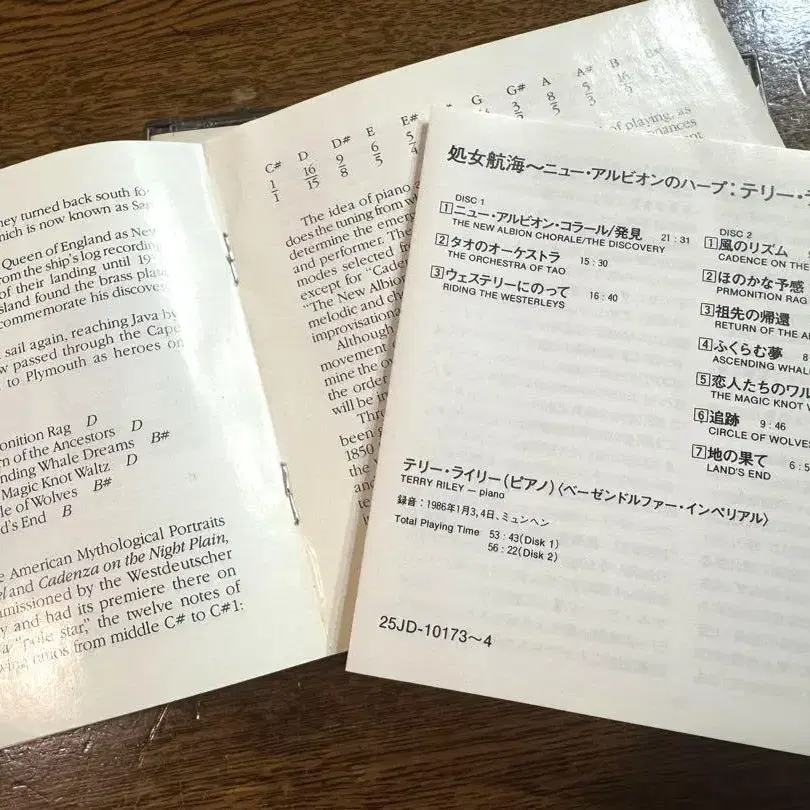 hey turned back south for
hich is now known as San
Queen of England as New
from the ship's log recording
of their landing until 19
sland found the brass plaq
commemorate his discover
sail again, reaching Java by
w passed through the Cape
to Plymouth as heroes on
onition Rag D
rn of the Ancestors D
nding Whale Dreams B#
Magic Knot Waltz D
le of Wolves B#
d's End B
e American Mythological Portraits
el and Cadenza on the Night Plain,
mmissioned by the Westdeutscher
y and had its premiere there on
a "pole star," the twelve notes of
from middle C# to C#1:
C# D D# E E# G G# A A# B
1/1 16/15 9/8 6/5 5/4 8/5 5/3 16/9
of playing, as
The idea of piano a
does the tuning from wh
determine the emer
and performer. The
modes selected fr
except for "Caden
"The New Albion
melodic and cha
improvisational
Although
movement
mine the ov
the order
will be in
Thro
been g
1850
the
and
処女航海～ニュー・アルビオンのハープ：テリー・
DISC 1
1 ニュー・アルビオン・コラール/発見 21：31
THE NEW ALBION CHORALE/THE DISCOVERY
2 タオのオーケストラ 15：30
THE ORCHESTRA OF TAO
3 ウェステリーにのって 16：40
RIDING THE WESTERLEYS
DISC 2
1 風のリズム
CADENCE ON THE
2 ほのかな予感
PRMONITION RAG
3 祖先の帰還
RETURN OF THE A
4 ふくらむ夢 8
ASCENDING WHALE
5 恋人たちのワル
THE MAGIC KNOT
6 追跡 9：46
CIRCLE OF WOLVES
7 地の果て 6：5
LAND'S END
テリー・ライリー(ピアノ)〈ベーゼンドルファー・インペリアル〉
TERRY RILEY — piano
録音：1986年1月3,4日、ミュンヘン
Total Playing Time 53：43(Disk 1)
56：22(Disk 2)
25JD-10173～4